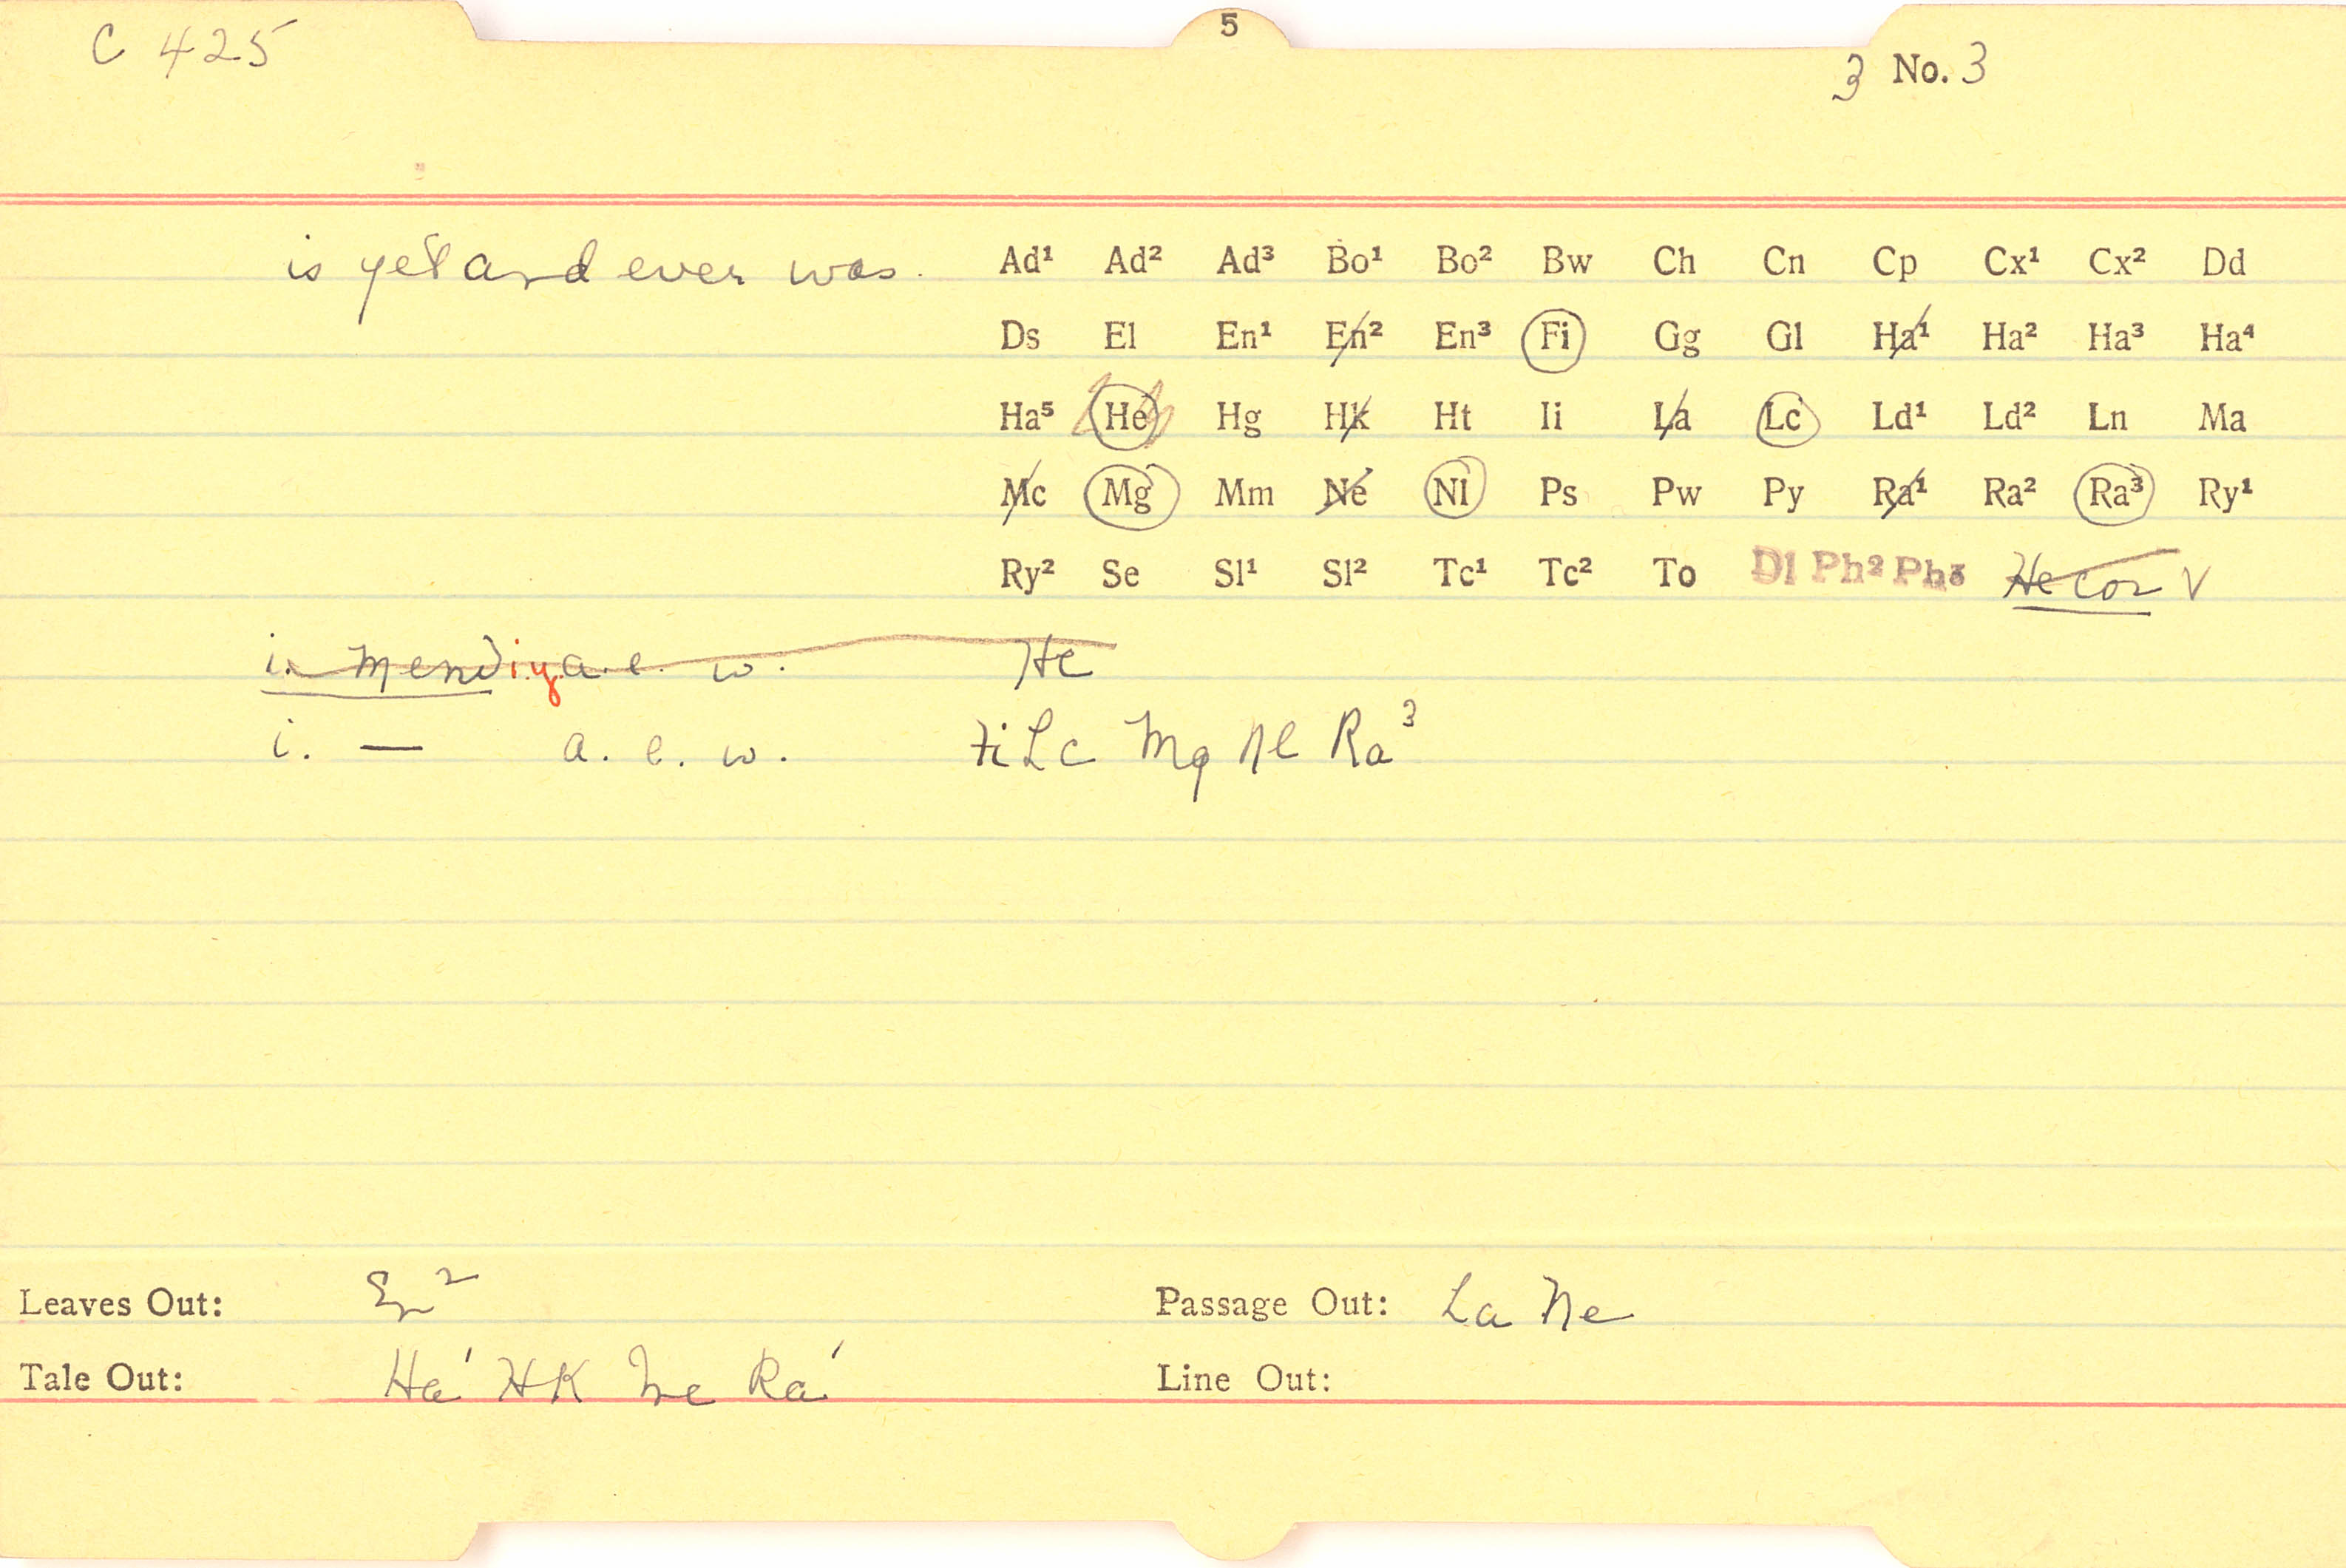 C 425
5
3 No. 3
is yet and ever was.
Ad¹ Ad² Ad³ Bo¹ Bo² Bw Ch Cn Cp Cx¹ Cx² Dd
Ds El En¹ En² En³ Fi Gg Gl Ha¹ Ha² Ha³ Ha⁴
Ha⁵ He Hg Hk Ht Ii La Lc Ld¹ Ld² Ln Ma
Mc Mg Mm Ne Nl Ps Pw Py Ra¹ Ra² Ra³ Ry¹
Ry² Se Sl¹ Sl² Tc¹ Tc² To Dl Ph² Ph³ He cor √
i. iy. a. e. w. He
i. — a. e. w. Fi Lc Mg Nl Ra³
Leaves Out: En²
Passage Out: La Ne
Tale Out: Ha¹ HK Mc Ra¹
Line Out: